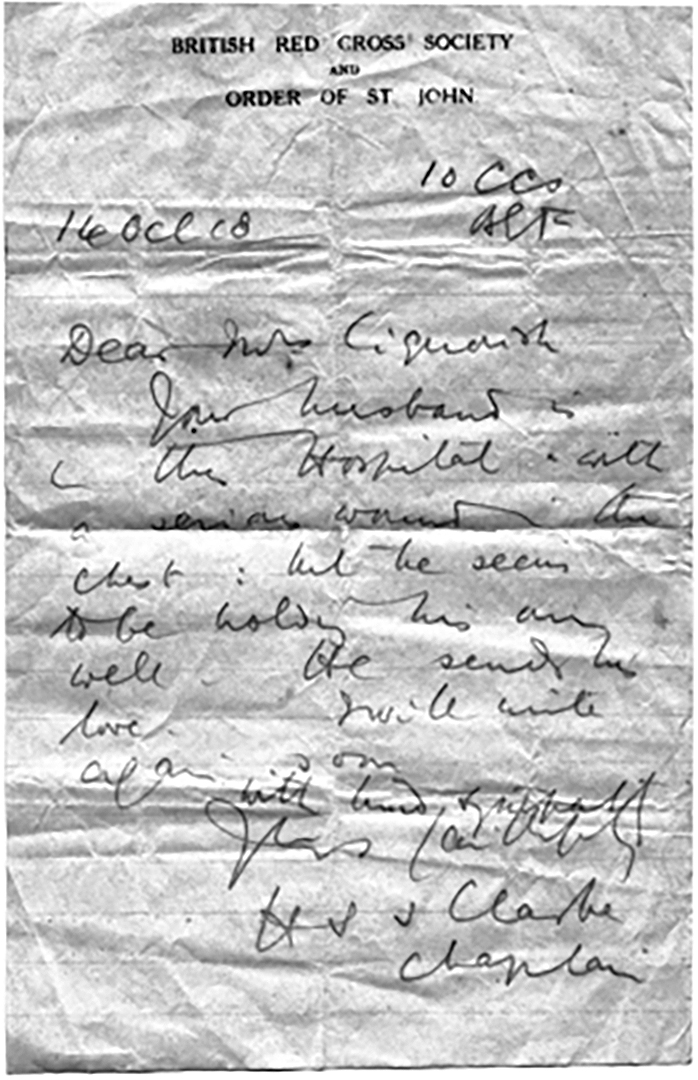 BRITISH RED CROSS SOCIETY
AND
ORDER OF ST JOHN
10 CCS
14 Oct 18
BEF
Dear Mrs
Your husband is
in this Hospital with
a serious wound in the
chest : but he seems
to be holding his own
well. He sends his
love. I will write
again soon
with kind sympathy
Yours faithfully
Clarke
Chaplain